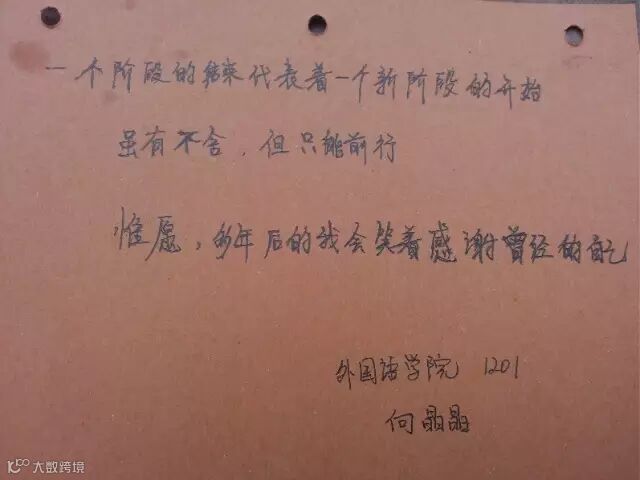 一个阶段的结束代表着一个新阶段的开始
虽有不舍，但只能前行
惟愿，多年后的我会笑着感谢曾经的自己
外国语学院 1201
何晶晶
大数跨境